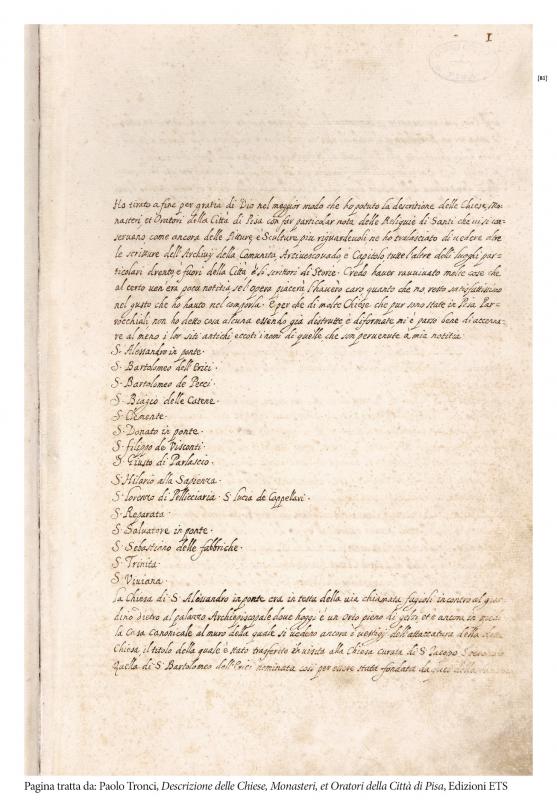 1
[R1]
Ho tirato a fine per gratia di Dio nel meglior modo che ho potuto la descritione delle Chiese, Mo-
nasteri et Oratori della Città di Pisa con far particolar nota delle Reliquie di Santi che ivi si con-
servano, come ancora delle Pitture e Sculture più riguardevoli ne ho tralasciato di vedere oltre
le scritture dell'Archivio della Comunità, Arcivescovado, e Capitolo tutte l'altre delli luoghi par-
ticolari drento e fuori della Città e li scrittori di Storie. Credo haver ravvivato molte cose che
al certo ven'era poca notitia se l'opera piacerà l'haverò caro quanto che no resto satisfattissimo
nel gusto che ho hauto nel comporla. E per che di molte Chiese che pur sono state in Pisa Par-
rocchiali non ho detto cosa alcuna essendo già distrutte e disformate mi è parso bene di accenna-
re al meno i lor siti antichi eccoti i nomi di quelle che son pervenute a mia notitia.
S. Alessandro in ponte.
S. Bartolomeo dell'Erici.
S. Bartolomeo de Pecci.
S. Biagio delle Catene.
S. Clemente.
S. Donato in ponte.
S. filippo de Visconti.
S. Giusto di Parlascio.
S. Hilario alla Sapienza.
S. lorenzo di Pellicciaria. S. Lucia de Cappellari.
S. Reparata.
S. Salvatore in ponte.
S. Sebastiano delle fabbriche.
S. Trinita.
S. Viviana.
la Chiesa di S. Alessandro in ponte era in testa della via chiamata fagioli incontro al giar-
dino dietro al palazzo Archiepiscopale dove hoggi è un orto pieno di gelsi, et è ancora in piedi
la Casa Canonicale al muro della quale si vedeno ancora i vestigi dell'attaccatura della
Chiesa, il titolo della quale è stato trasferito in vista alla Chiesa curata di S. Jacopo
Quella di S. Bartolomeo dell'Erici nominata così per essere stata fondata da
Pagina tratta da: Paolo Tronci, Descrizione delle Chiese, Monasteri, et Oratori della Città di Pisa, Edizioni ETS